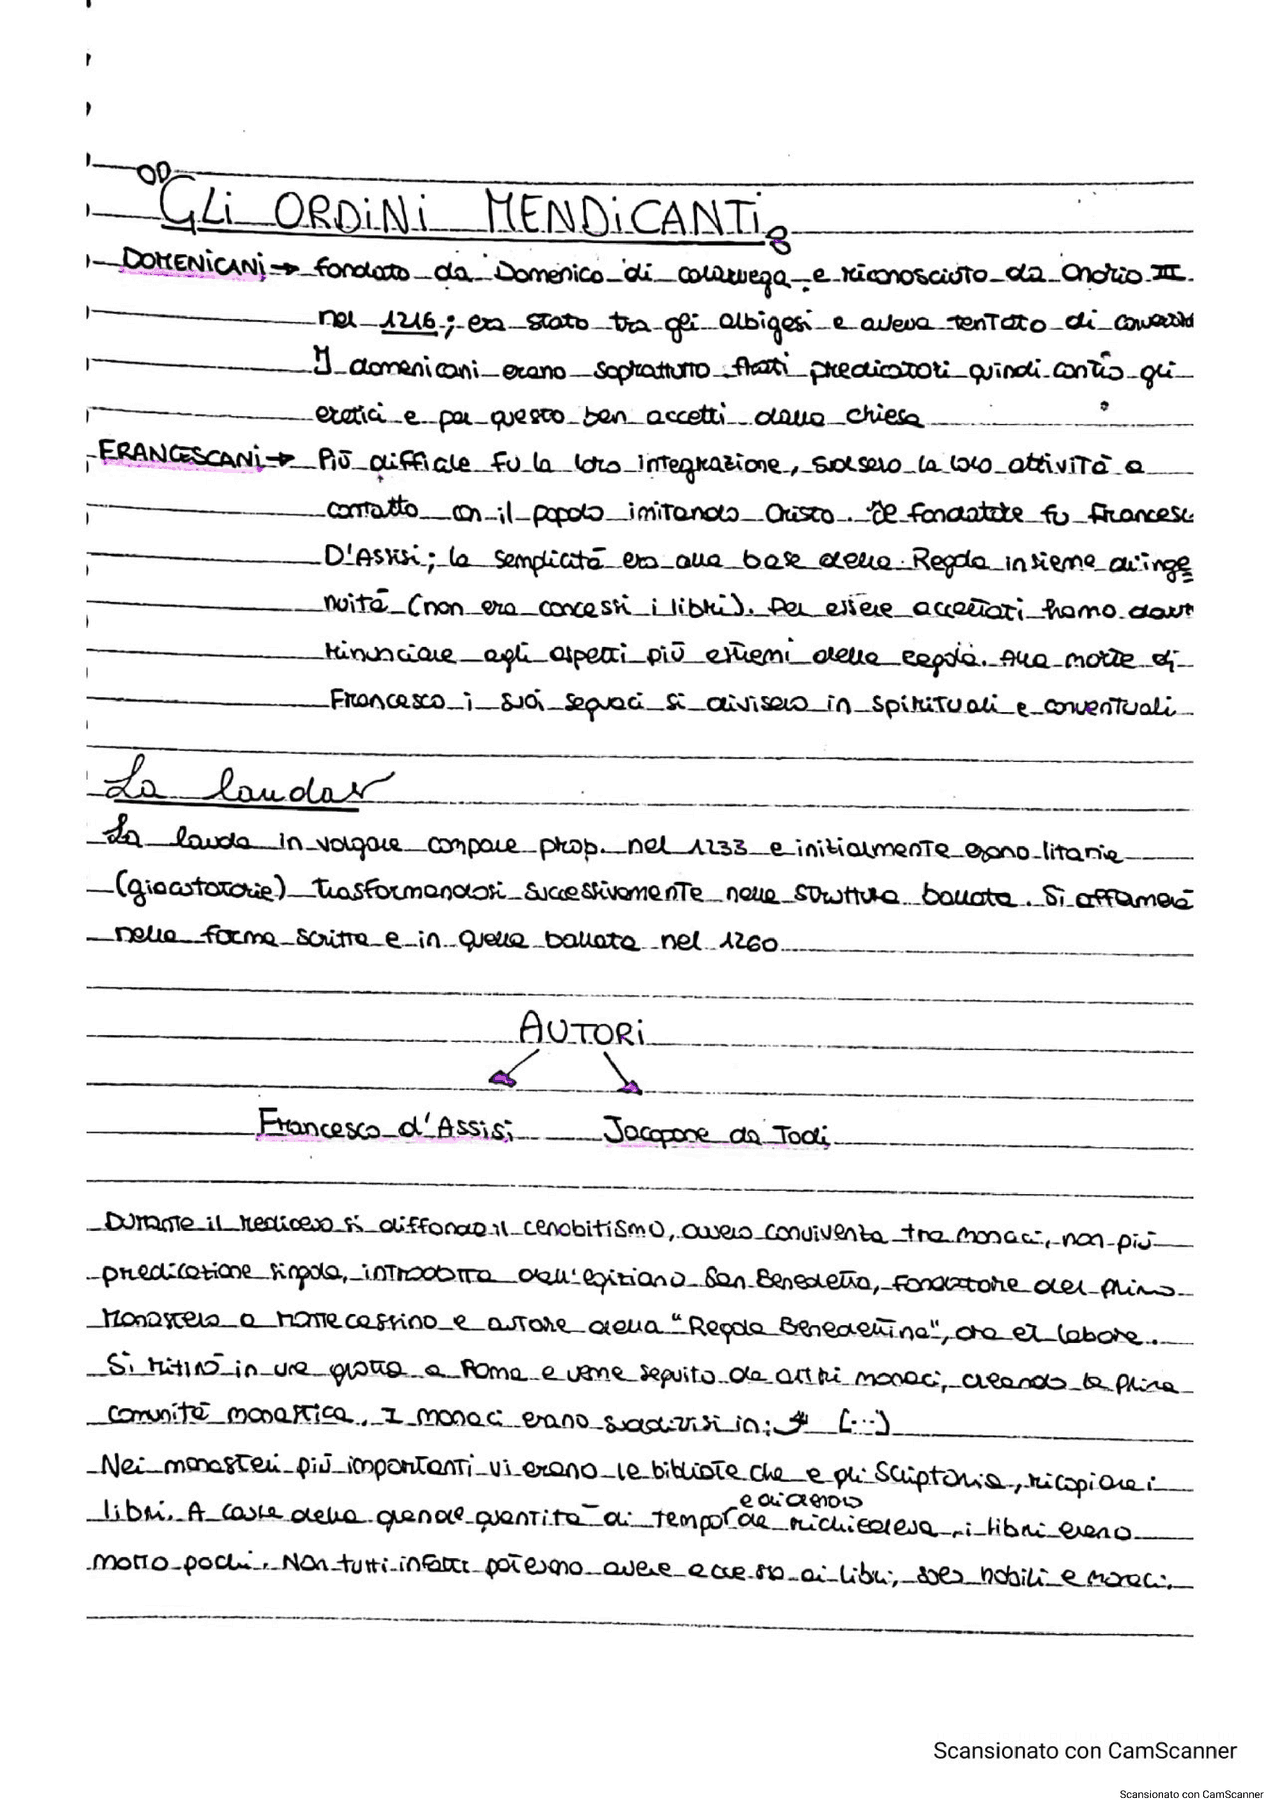 GLi ORDiNi MENDiCANTi
DOMENICANI → fondato da Domenico di e riconosciuto da Onorio III
nel 1216; era stato tra gli albigesi e aveva tentato di
I domenicani erano soprattutto frati predicatori quindi contro gli
eretici e per questo ben accetti dalla chiesa
FRANCESCANI → Più difficile fu la loro integrazione, svolsero la loro attività a
contatto con il popolo imitando Cristo. Il fondatore fu Francesc
D'Assisi; la semplicità era alla base della Regola insieme all'inge
nuità (non era concessi i libri). Per essere accettati hanno
rinunciare agli aspetti più estremi della regola. Alla morte di
Francesco i suoi seguaci si divisero in spirituali e conventuali
La lauda
La lauda in volgare compare prop. nel 1233 e inizialmente erano litanie
(giaculatorie) trasformandosi successivamente nella struttura ballata. Si affermerà
nella forma scritta e in quella ballata nel 1260
AUTORi
Francesco d'Assisi Jacopone da Todi
Durante il Medioevo si diffonde il cenobitismo, ovvero convivenza tra monaci, non più
predicazione singola, introdotta dall'egiziano San Benedetto, fondatore del primo
Monastero a Montecassino e autore della "Regola Benedettina", ora et labora.
Si ritirò in una grotta a Roma e venne seguito da altri monaci, creando la prima
comunità monastica. I monaci erano suddivisi in: (...)
Nei monasteri più importanti vi erano le biblioteche e gli Scriptoria, ricopiare i
libri. A causa della grande quantità di tempo e di denaro che richiedeva, i libri erano
molto pochi. Non tutti infatti potevano avere accesso ai libri, solo nobili e monaci.
Scansionato con CamScanner
Scansionato con CamScanner